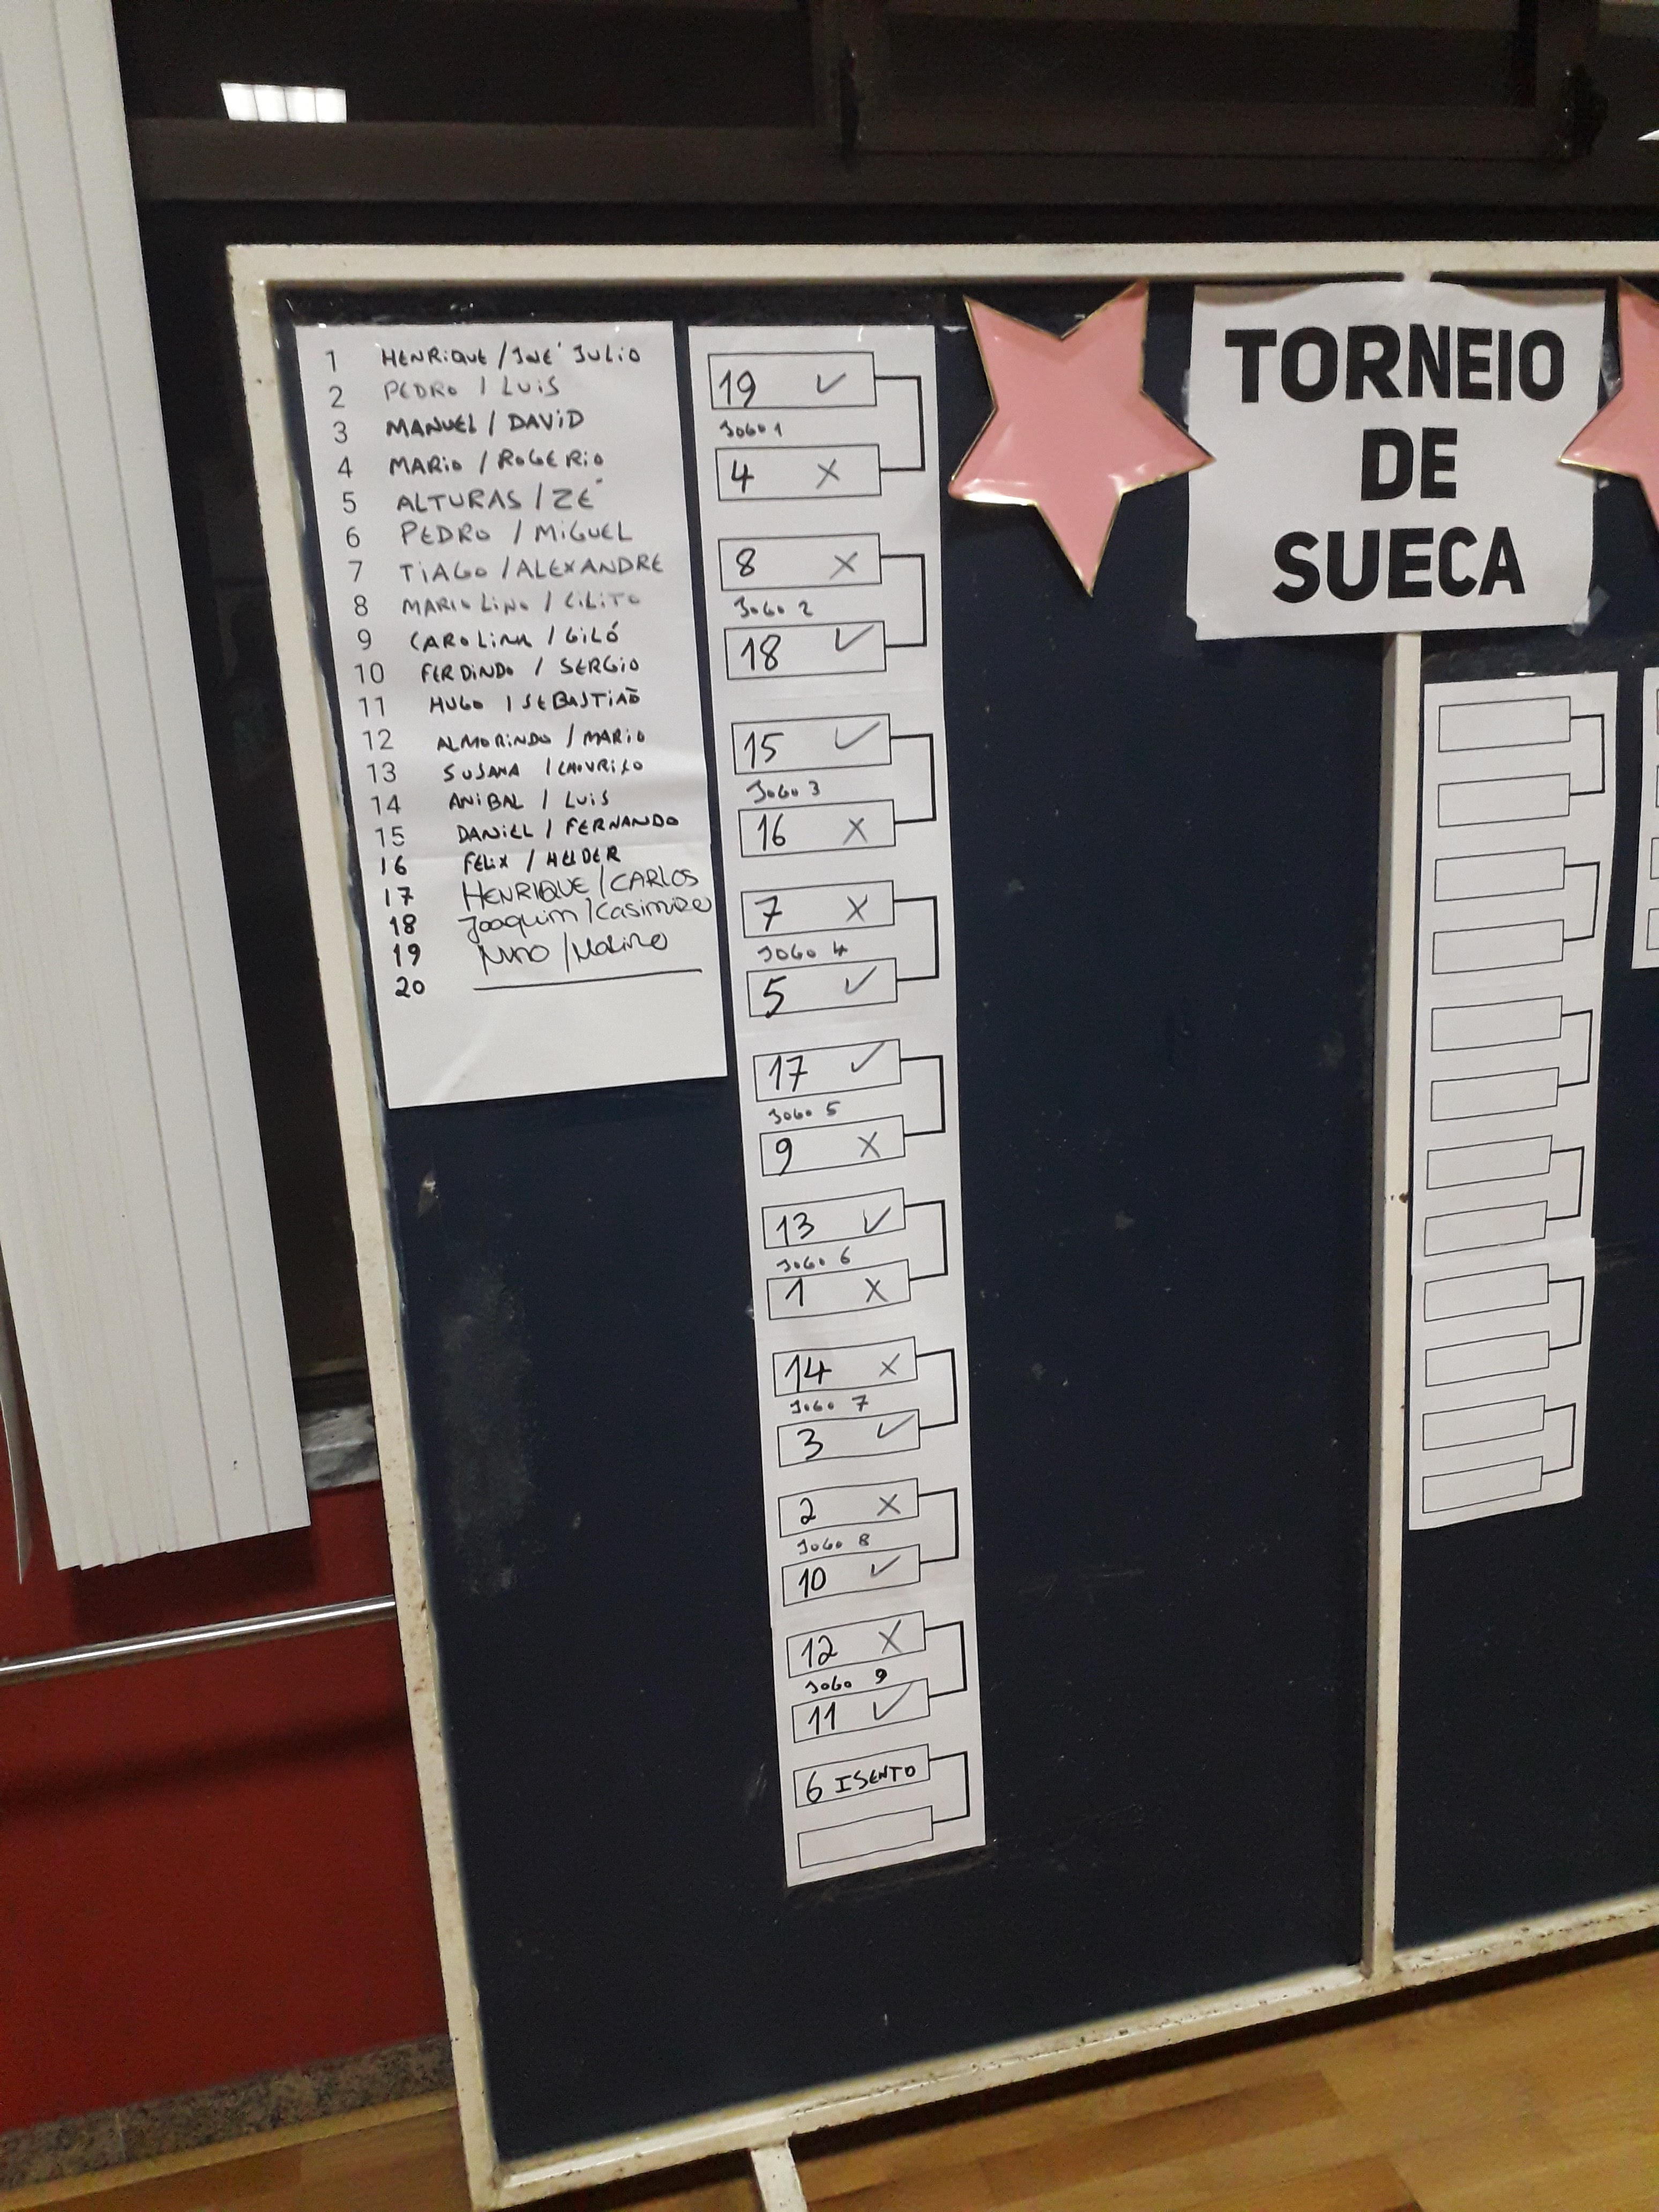 TORNEIO
DE
SUECA
1 HENRIQUE / JOSÉ JULIO
2 PEDRO / LUIS
3 MANUEL / DAVID
4 MARIO / ROGERIO
5 ALTURAS / ZÉ
6 PEDRO / MIGUEL
7 TIAGO / ALEXANDRE
8 MARIO LINO / CILITO
9 CAROLINA / GILÓ
10 FERDINDO / SERGIO
11 HUGO / SEBASTIÃO
12 ALMORINDO / MARIO
13 SUSANA /
14 ANIBAL / LUIS
15 DANIEL / FERNANDO
16 FELIX / HELDER
17 HENRIQUE / CARLOS
18 Joaquim / Casimiro
19 NUNO /
20
19 ✓
JOGO 1
4 X
8 X
JOGO 2
18 ✓
15 ✓
JOGO 3
16 X
7 X
JOGO 4
5 ✓
17 ✓
JOGO 5
9 X
13 ✓
JOGO 6
1 X
14 X
JOGO 7
3 ✓
2 X
JOGO 8
10 ✓
12 X
JOGO 9
11 ✓
6 ISENTO